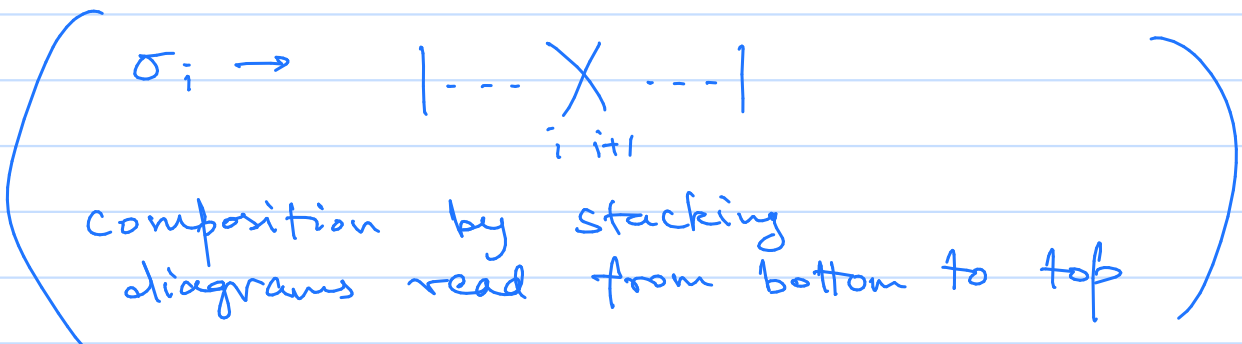 σᵢ → |--- X ---|
i i+1
composition by stacking
diagrams read from bottom to top